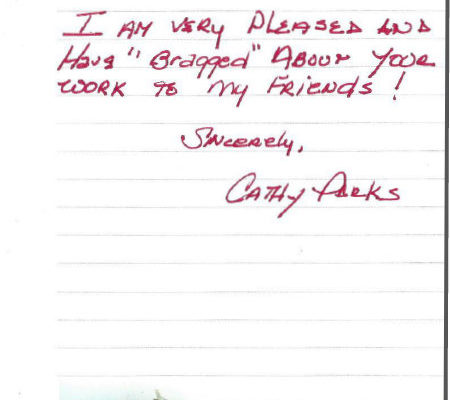 I AM VERY PLEASED AND
Have "Bragged" ABOUT YOUR
WORK TO MY FRIENDS!
SINCERELY,
CATHY PARKS